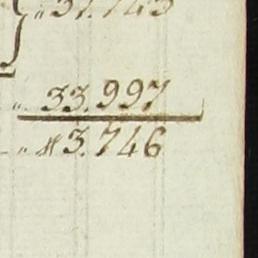 " 37.743
" 33.997
" # 3.746